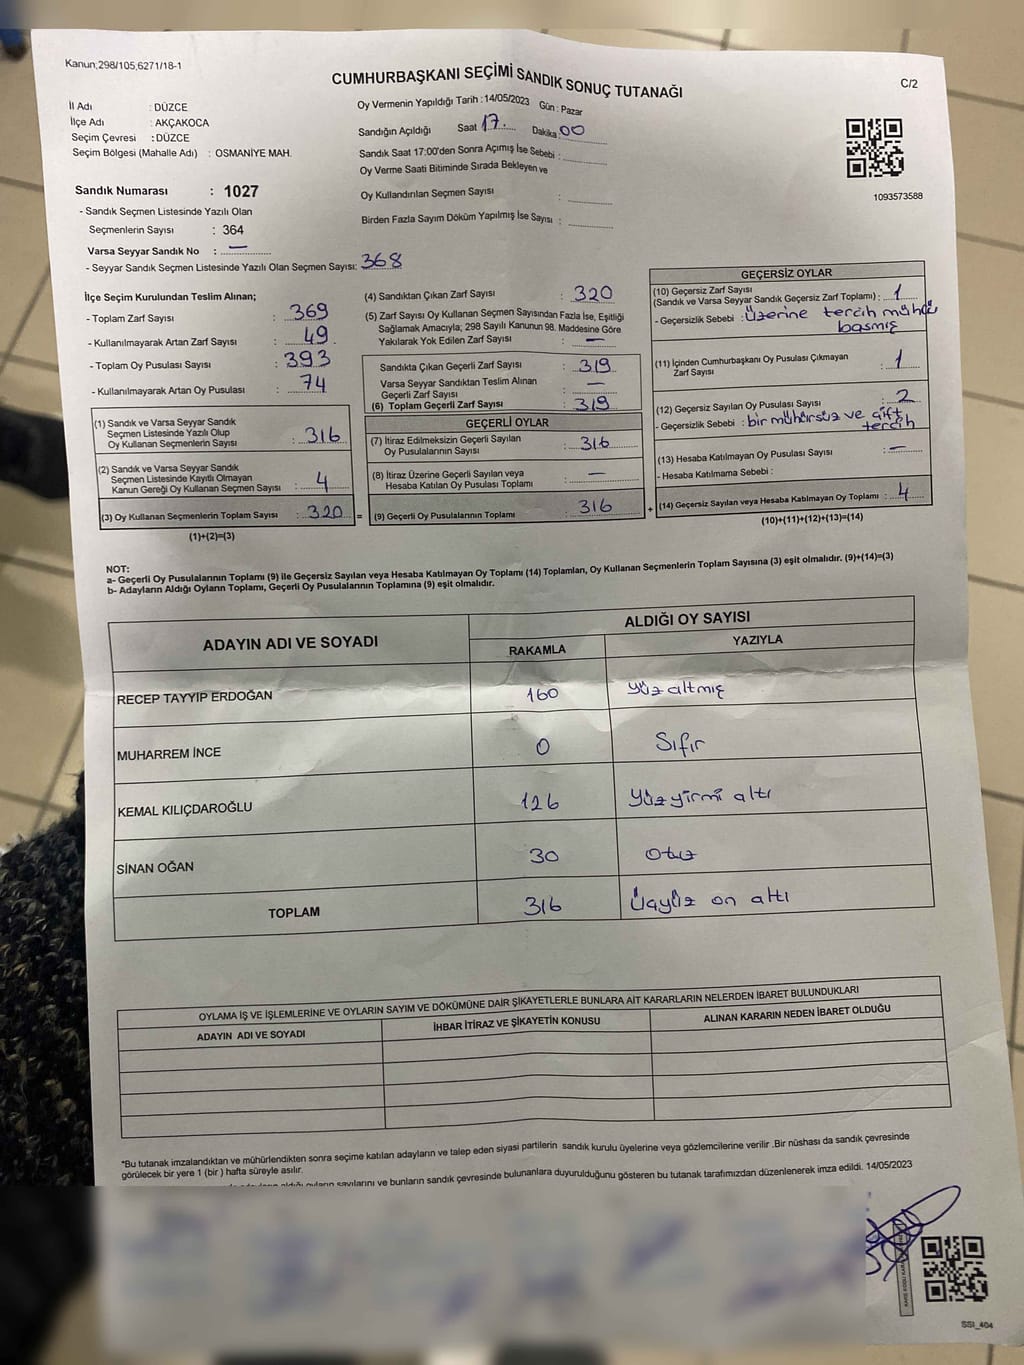 Kanun;298/105,6271/18-1
CUMHURBAŞKANI SEÇİMİ SANDIK SONUÇ TUTANAĞI
C/2
İl Adı : DÜZCE
İlçe Adı : AKÇAKOCA
Seçim Çevresi : DÜZCE
Seçim Bölgesi (Mahalle Adı) : OSMANİYE MAH.
Oy Vermenin Yapıldığı Tarih : 14/05/2023 Gün : Pazar
Sandığın Açıldığı Saat 17. Dakika 00
Sandık Saat 17:00'den Sonra Açımış İse Sebebi :
Oy Verme Saati Bitiminde Sırada Bekleyen ve
Oy Kullandırılan Seçmen Sayısı :
Birden Fazla Sayım Döküm Yapılmış İse Sayısı :
1093573588
Sandık Numarası : 1027
- Sandık Seçmen Listesinde Yazılı Olan
Seçmenlerin Sayısı : 364
Varsa Seyyar Sandık No : —
- Seyyar Sandık Seçmen Listesinde Yazılı Olan Seçmen Sayısı: 368
İlçe Seçim Kurulundan Teslim Alınan;
- Toplam Zarf Sayısı : 369
- Kullanılmayarak Artan Zarf Sayısı : 49
- Toplam Oy Pusulası Sayısı : 393
- Kullanılmayarak Artan Oy Pusulası : 74
(1) Sandık ve Varsa Seyyar Sandık
Seçmen Listesinde Yazılı Olup
Oy Kullanan Seçmenlerin Sayısı : 316
(2) Sandık ve Varsa Seyyar Sandık
Seçmen Listesinde Kayıtlı Olmayan
Kanun Gereği Oy Kullanan Seçmen Sayısı : 4
(3) Oy Kullanan Seçmenlerin Toplam Sayısı : 320
(1)+(2)=(3)
(4) Sandıktan Çıkan Zarf Sayısı : 320
(5) Zarf Sayısı Oy Kullanan Seçmen Sayısından Fazla İse, Eşitliği
Sağlamak Amacıyla; 298 Sayılı Kanunun 98. Maddesine Göre
Yakılarak Yok Edilen Zarf Sayısı : —
Sandıkta Çıkan Geçerli Zarf Sayısı : 319
Varsa Seyyar Sandıktan Teslim Alınan
Geçerli Zarf Sayısı : —
(6) Toplam Geçerli Zarf Sayısı : 319
GEÇERLİ OYLAR
(7) İtiraz Edilmeksizin Geçerli Sayılan
Oy Pusulalarının Sayısı : 316
(8) İtiraz Üzerine Geçerli Sayılan veya
Hesaba Katılan Oy Pusulası Toplamı : —
= (9) Geçerli Oy Pusulalarının Toplamı : 316
GEÇERSİZ OYLAR
(10) Geçersiz Zarf Sayısı
(Sandık ve Varsa Seyyar Sandık Geçersiz Zarf Toplamı) : 1
- Geçersizlik Sebebi : Üzerine tercih mührü
basmış
(11) İçinden Cumhurbaşkanı Oy Pusulası Çıkmayan
Zarf Sayısı : 1
(12) Geçersiz Sayılan Oy Pusulası Sayısı : 2
- Geçersizlik Sebebi : bir mühürsüz ve çift
tercih
(13) Hesaba Katılmayan Oy Pusulası Sayısı : —
- Hesaba Katılmama Sebebi :
+ (14) Geçersiz Sayılan veya Hesaba Katılmayan Oy Toplamı : 4
(10)+(11)+(12)+(13)=(14)
NOT:
a- Geçerli Oy Pusulalarının Toplamı (9) ile Geçersiz Sayılan veya Hesaba Katılmayan Oy Toplamı (14) Toplamları, Oy Kullanan Seçmenlerin Toplam Sayısına (3) eşit olmalıdır. (9)+(14)=(3)
b- Adayların Aldığı Oyların Toplamı, Geçerli Oy Pusulalarının Toplamına (9) eşit olmalıdır.
ADAYIN ADI VE SOYADI
ALDIĞI OY SAYISI
RAKAMLA YAZIYLA
RECEP TAYYIP ERDOĞAN 160 Yüz altmış
MUHARREM İNCE 0 Sıfır
KEMAL KILIÇDAROĞLU 126 Yüz yirmi altı
SİNAN OĞAN 30 Otuz
TOPLAM 316 Üçyüz on altı
OYLAMA İŞ VE İŞLEMLERİNE VE OYLARIN SAYIM VE DÖKÜMÜNE DAİR ŞİKAYETLERLE BUNLARA AİT KARARLARIN NELERDEN İBARET BULUNDUKLARI
ADAYIN ADI VE SOYADI İHBAR İTİRAZ VE ŞİKAYETİN KONUSU ALINAN KARARIN NEDEN İBARET OLDUĞU
*Bu tutanak imzalandıktan ve mühürlendikten sonra seçime katılan adayların ve talep eden siyasi partilerin sandık kurulu üyelerine veya gözlemcilerine verilir .Bir nüshası da sandık çevresinde
görülecek bir yere 1 (bir ) hafta süreyle asılır.
aldığı oyların sayılarını ve bunların sandık çevresinde bulunanlara duyurulduğunu gösteren bu tutanak tarafımızdan düzenlenerek imza edildi. 14/05/2023
SSI_404